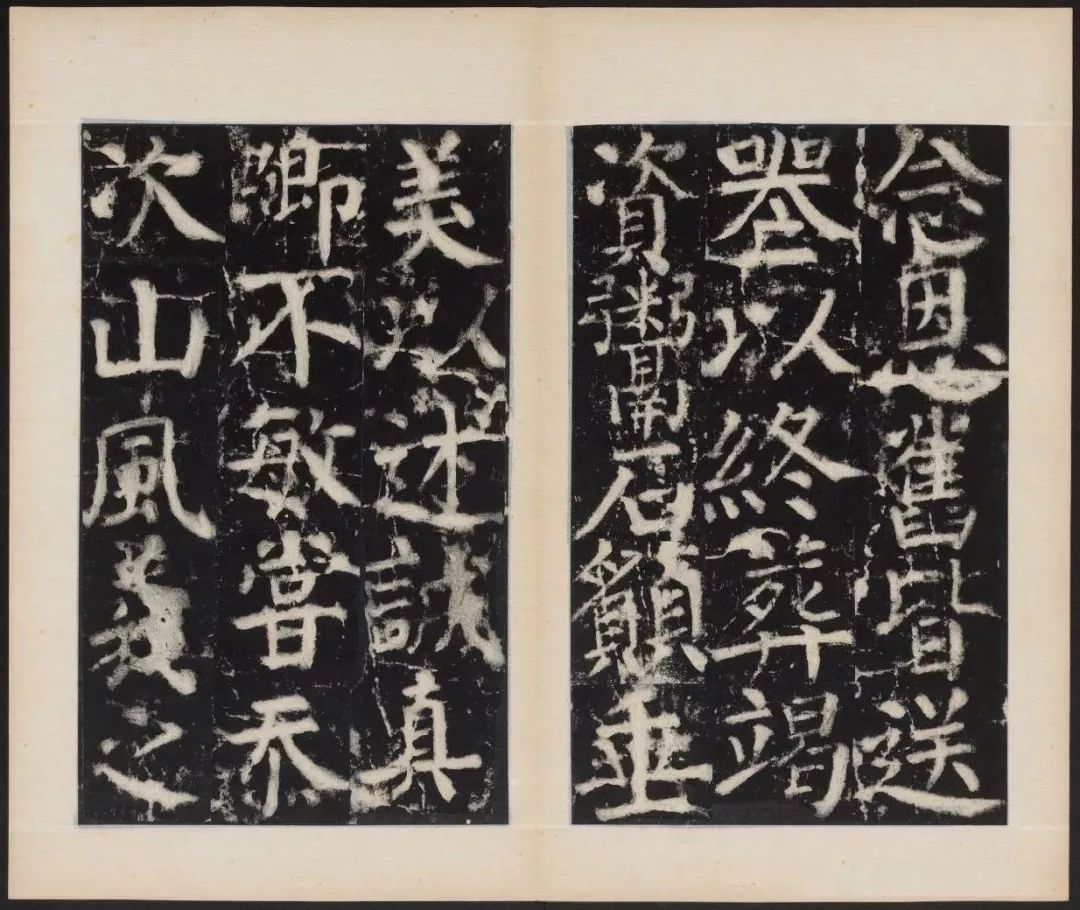 念恩舊皆送
喪以終葬竭
資鬻石願垂
美以述誠真
卿不敏嘗忝
次山風義之